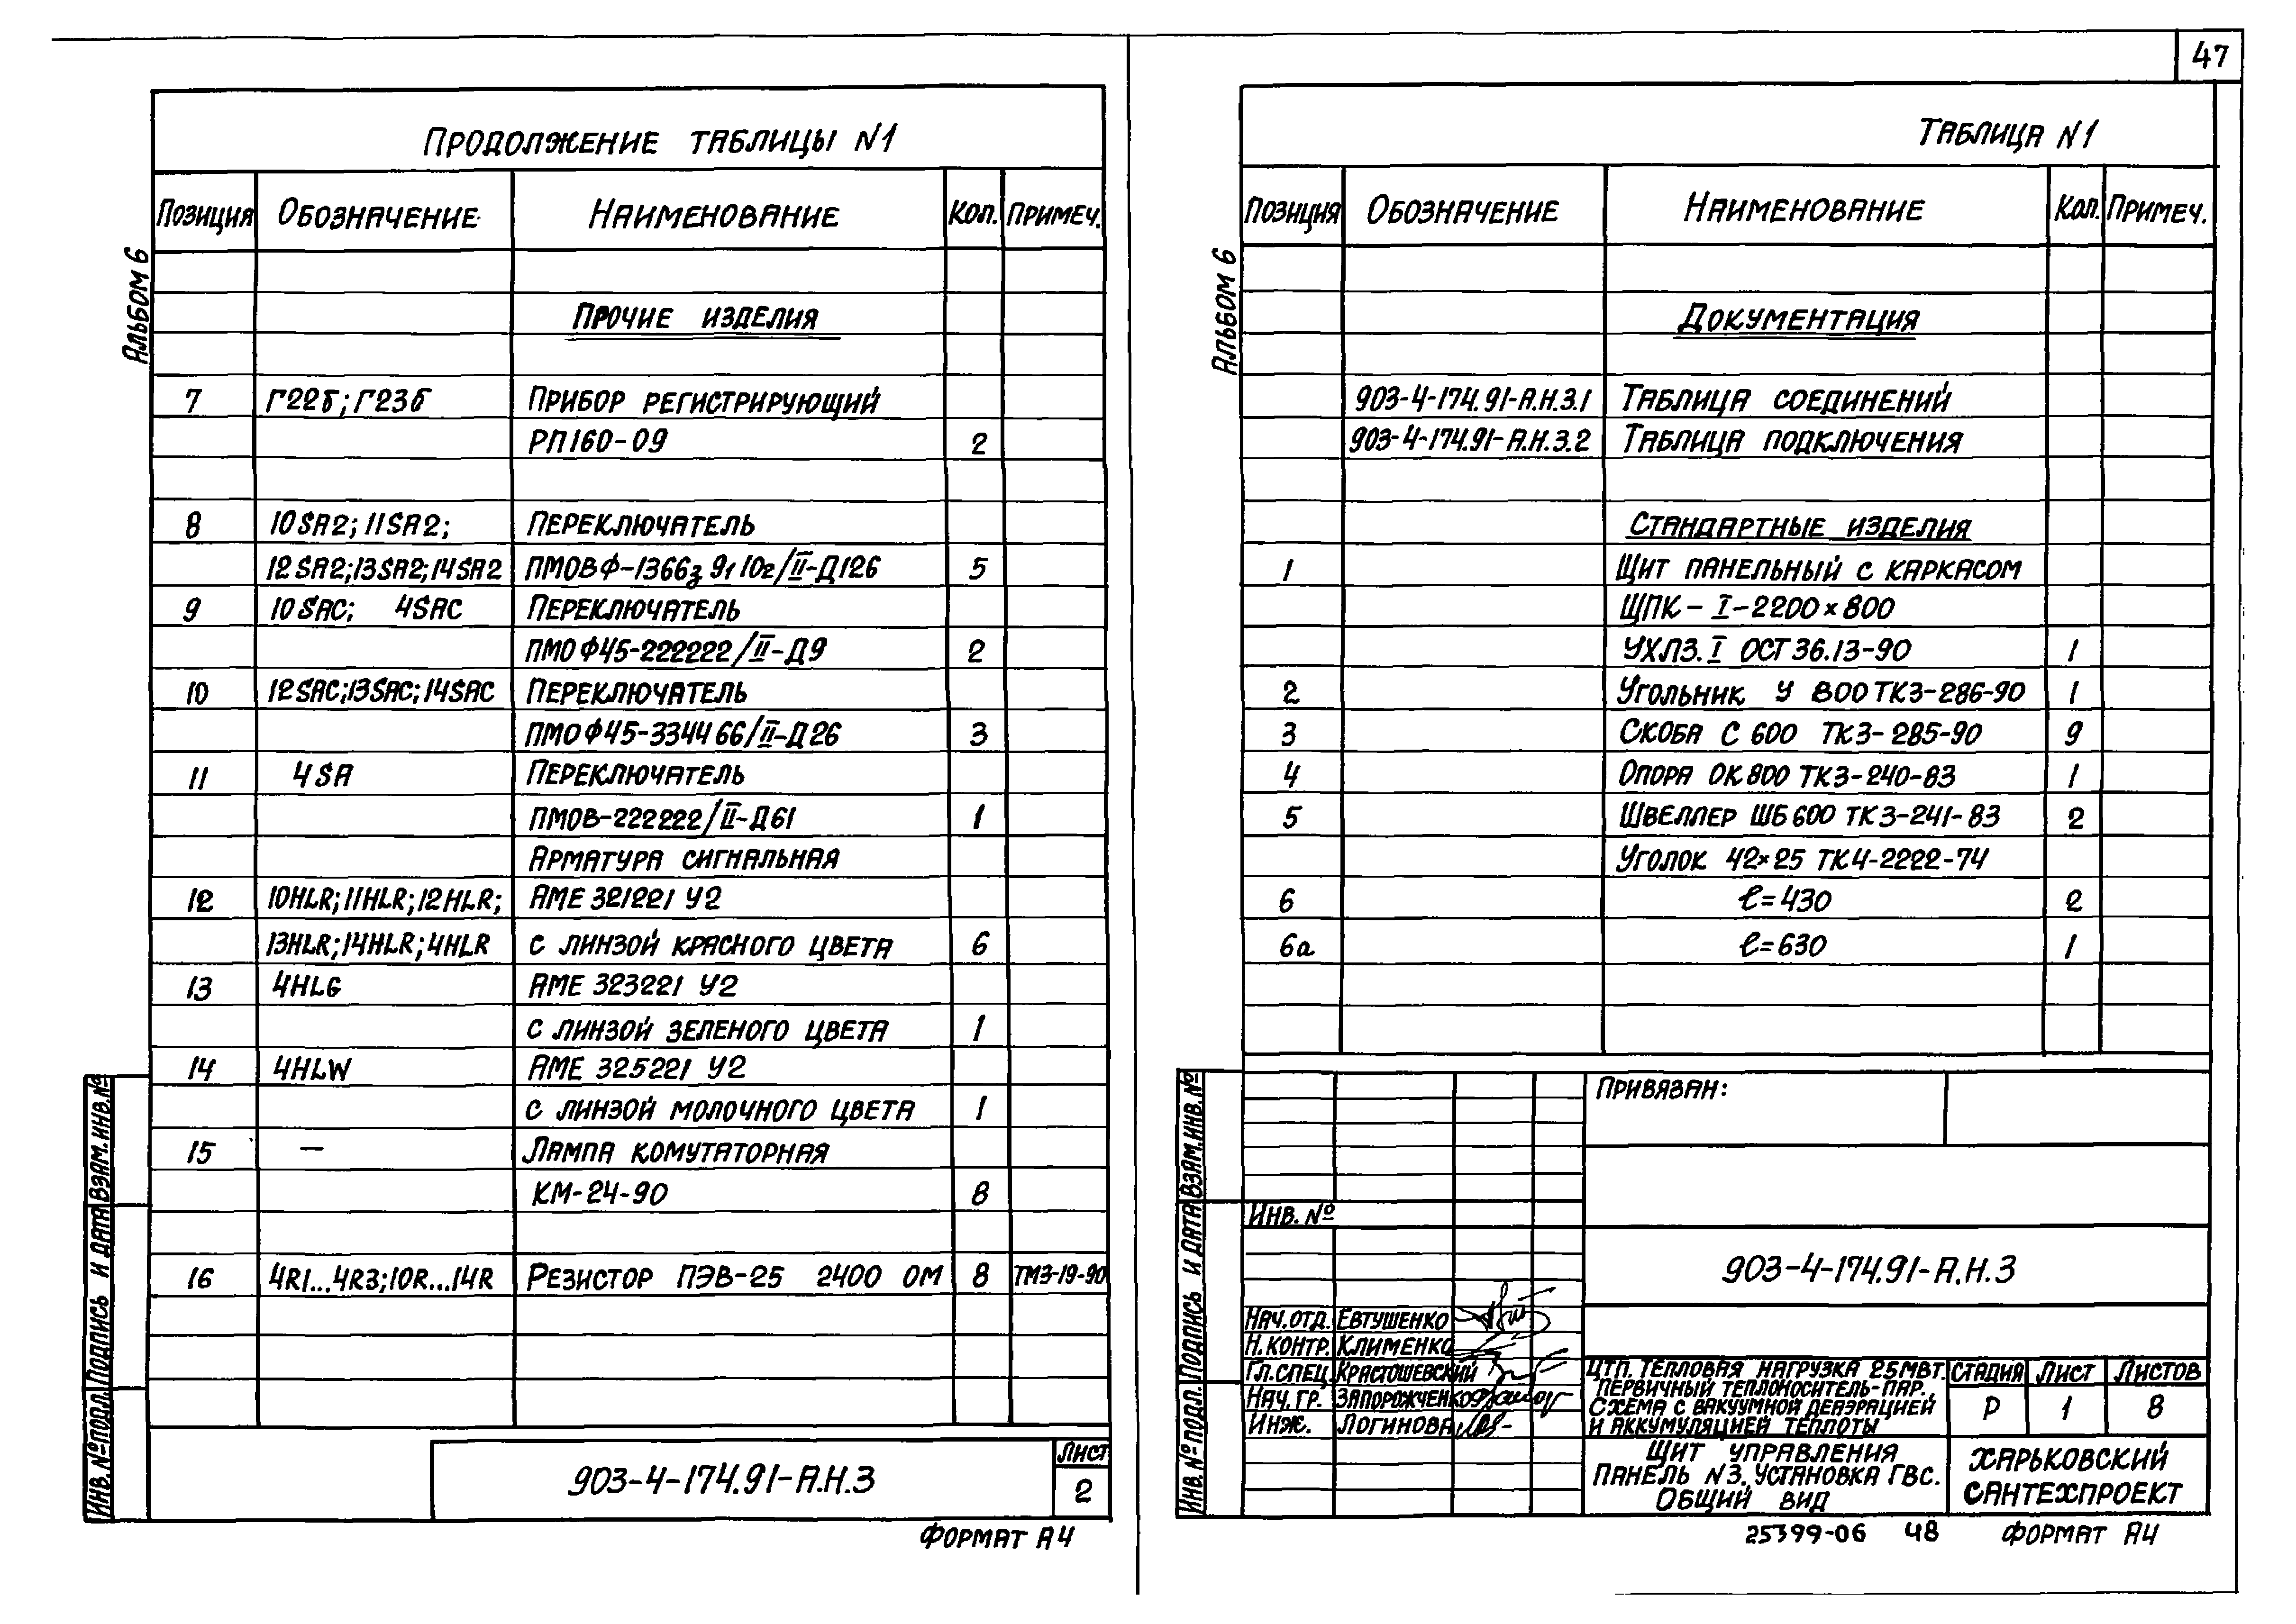 47
Продолжение таблицы N1
Позиция Обозначение Наименование Кол. Примеч.
Альбом 6
Прочие изделия
7 Г22б; Г23б Прибор регистрирующий
РП160-09 2
8 10SA2; 11SA2; Переключатель
12SA2; 13SA2; 14SA2 5
9 10SAC; 4SAC Переключатель
ПМОФ45-222222/II-Д9 2
10 12SAC; 13SAC; 14SAC Переключатель
ПМОФ45-334466/II-Д26 3
11 4SA Переключатель
ПМОВ-222222/II-Д61 1
Арматура сигнальная
12 10HLR; 11HLR; 12HLR; АМЕ 321221 У2
13HLR; 14HLR; 4HLR с линзой красного цвета 6
13 4HLG АМЕ 323221 У2
с линзой зеленого цвета 1
14 4HLW АМЕ 325221 У2
с линзой молочного цвета 1
15 — Лампа комутаторная
КМ-24-90 8
16 4R1...4R3; 10R...14R Резистор ПЭВ-25 2400 Ом 8 ТМ3-19-90
Взам. инв. №
Подпись и дата
Инв. № подл.
903-4-174.91-А.Н.3
Лист
2
Формат А4
Таблица N1
Позиция Обозначение Наименование Кол. Примеч.
Альбом 6
Документация
903-4-174.91-А.Н.3.1 Таблица соединений
903-4-174.91-А.Н.3.2 Таблица подключения
Стандартные изделия
1 Щит панельный с каркасом
ЩПК-I-2200×800
УХЛ3.I ОСТ 36.13-90 1
2 Угольник У 800 ТК3-286-90 1
3 Скоба С 600 ТК3-285-90 9
4 Опора ОК 800 ТК3-240-83 1
5 Швеллер ШБ 600 ТК3-241-83 2
Уголок 42×25 ТК4-2222-74
6 ℓ=430 2
6а ℓ=630 1
Привязан:
Взам. инв. №
Подпись и дата
Инв. № подл.
Инв. №
903-4-174.91-А.Н.3
Нач. отд. Евтушенко
Н. контр. Клименко
Гл. спец. Крастошевский
Нач. гр. Запорожченко
Инж. Логинова
ЦТП. Тепловая нагрузка 25МВт.
Первичный теплоноситель-пар.
Схема с вакуумной деаэрацией
и аккумуляцией теплоты
Стадия Лист Листов
Р 1 8
Щит управления
Панель N3. Установка ГВС.
Общий вид
Харьковский
Сантехпроект
25399-06 48 Формат А4